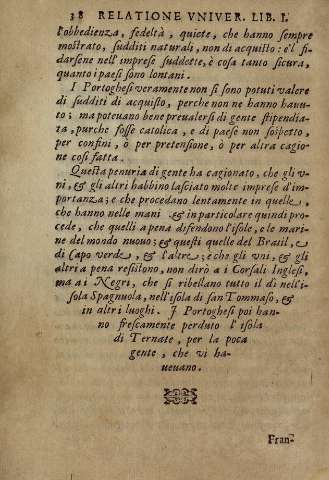 38 RELATIONE VNIVER. LIB. I.
l'obbedienza, fedeltà, quiete, che hanno sempre
mostrato, sudditi naturali, non di acquisto: e'l fi-
darsene nell'imprese suddette, è cosa tanto sicura,
quanto i paesi sono lontani.
I Portoghesi veramente non si sono potuti valere
di sudditi di acquisto, perche non ne hanno hauu-
to; ma poteuano bene preualersi di gente stipendia-
ta, purche fosse catolica, e di paese non sospetto,
per confini, ò per pretensione, ò per altra cagio-
ne così fatta.
Questa penuria di gente ha cagionato, che gli v-
ni, & gli altri habbino lasciato molte imprese d'im-
portanza; e che procedano lentamente in quelle,
che hanno nelle mani & in particolare quindi proce-
cede, che quelli a pena difendono l'isole, e le marine
ne del mondo nuouo; & questi quelle del Brasil, e
di Capo verde, & l'altre; e che gli vni, & gli
altri a pena resistono, non dirò a i Corsali Inglesi,
ma ai Negri, che si ribellano tutto il dì nell'i-
sola Spagnuola, nell'isola di san Tommaso, &
in altri luoghi. I Portoghesi poi han-
no frescamente perduto l'isola
di Ternate, per la poca
gente, che vi ha-
ueuano.
Fran-